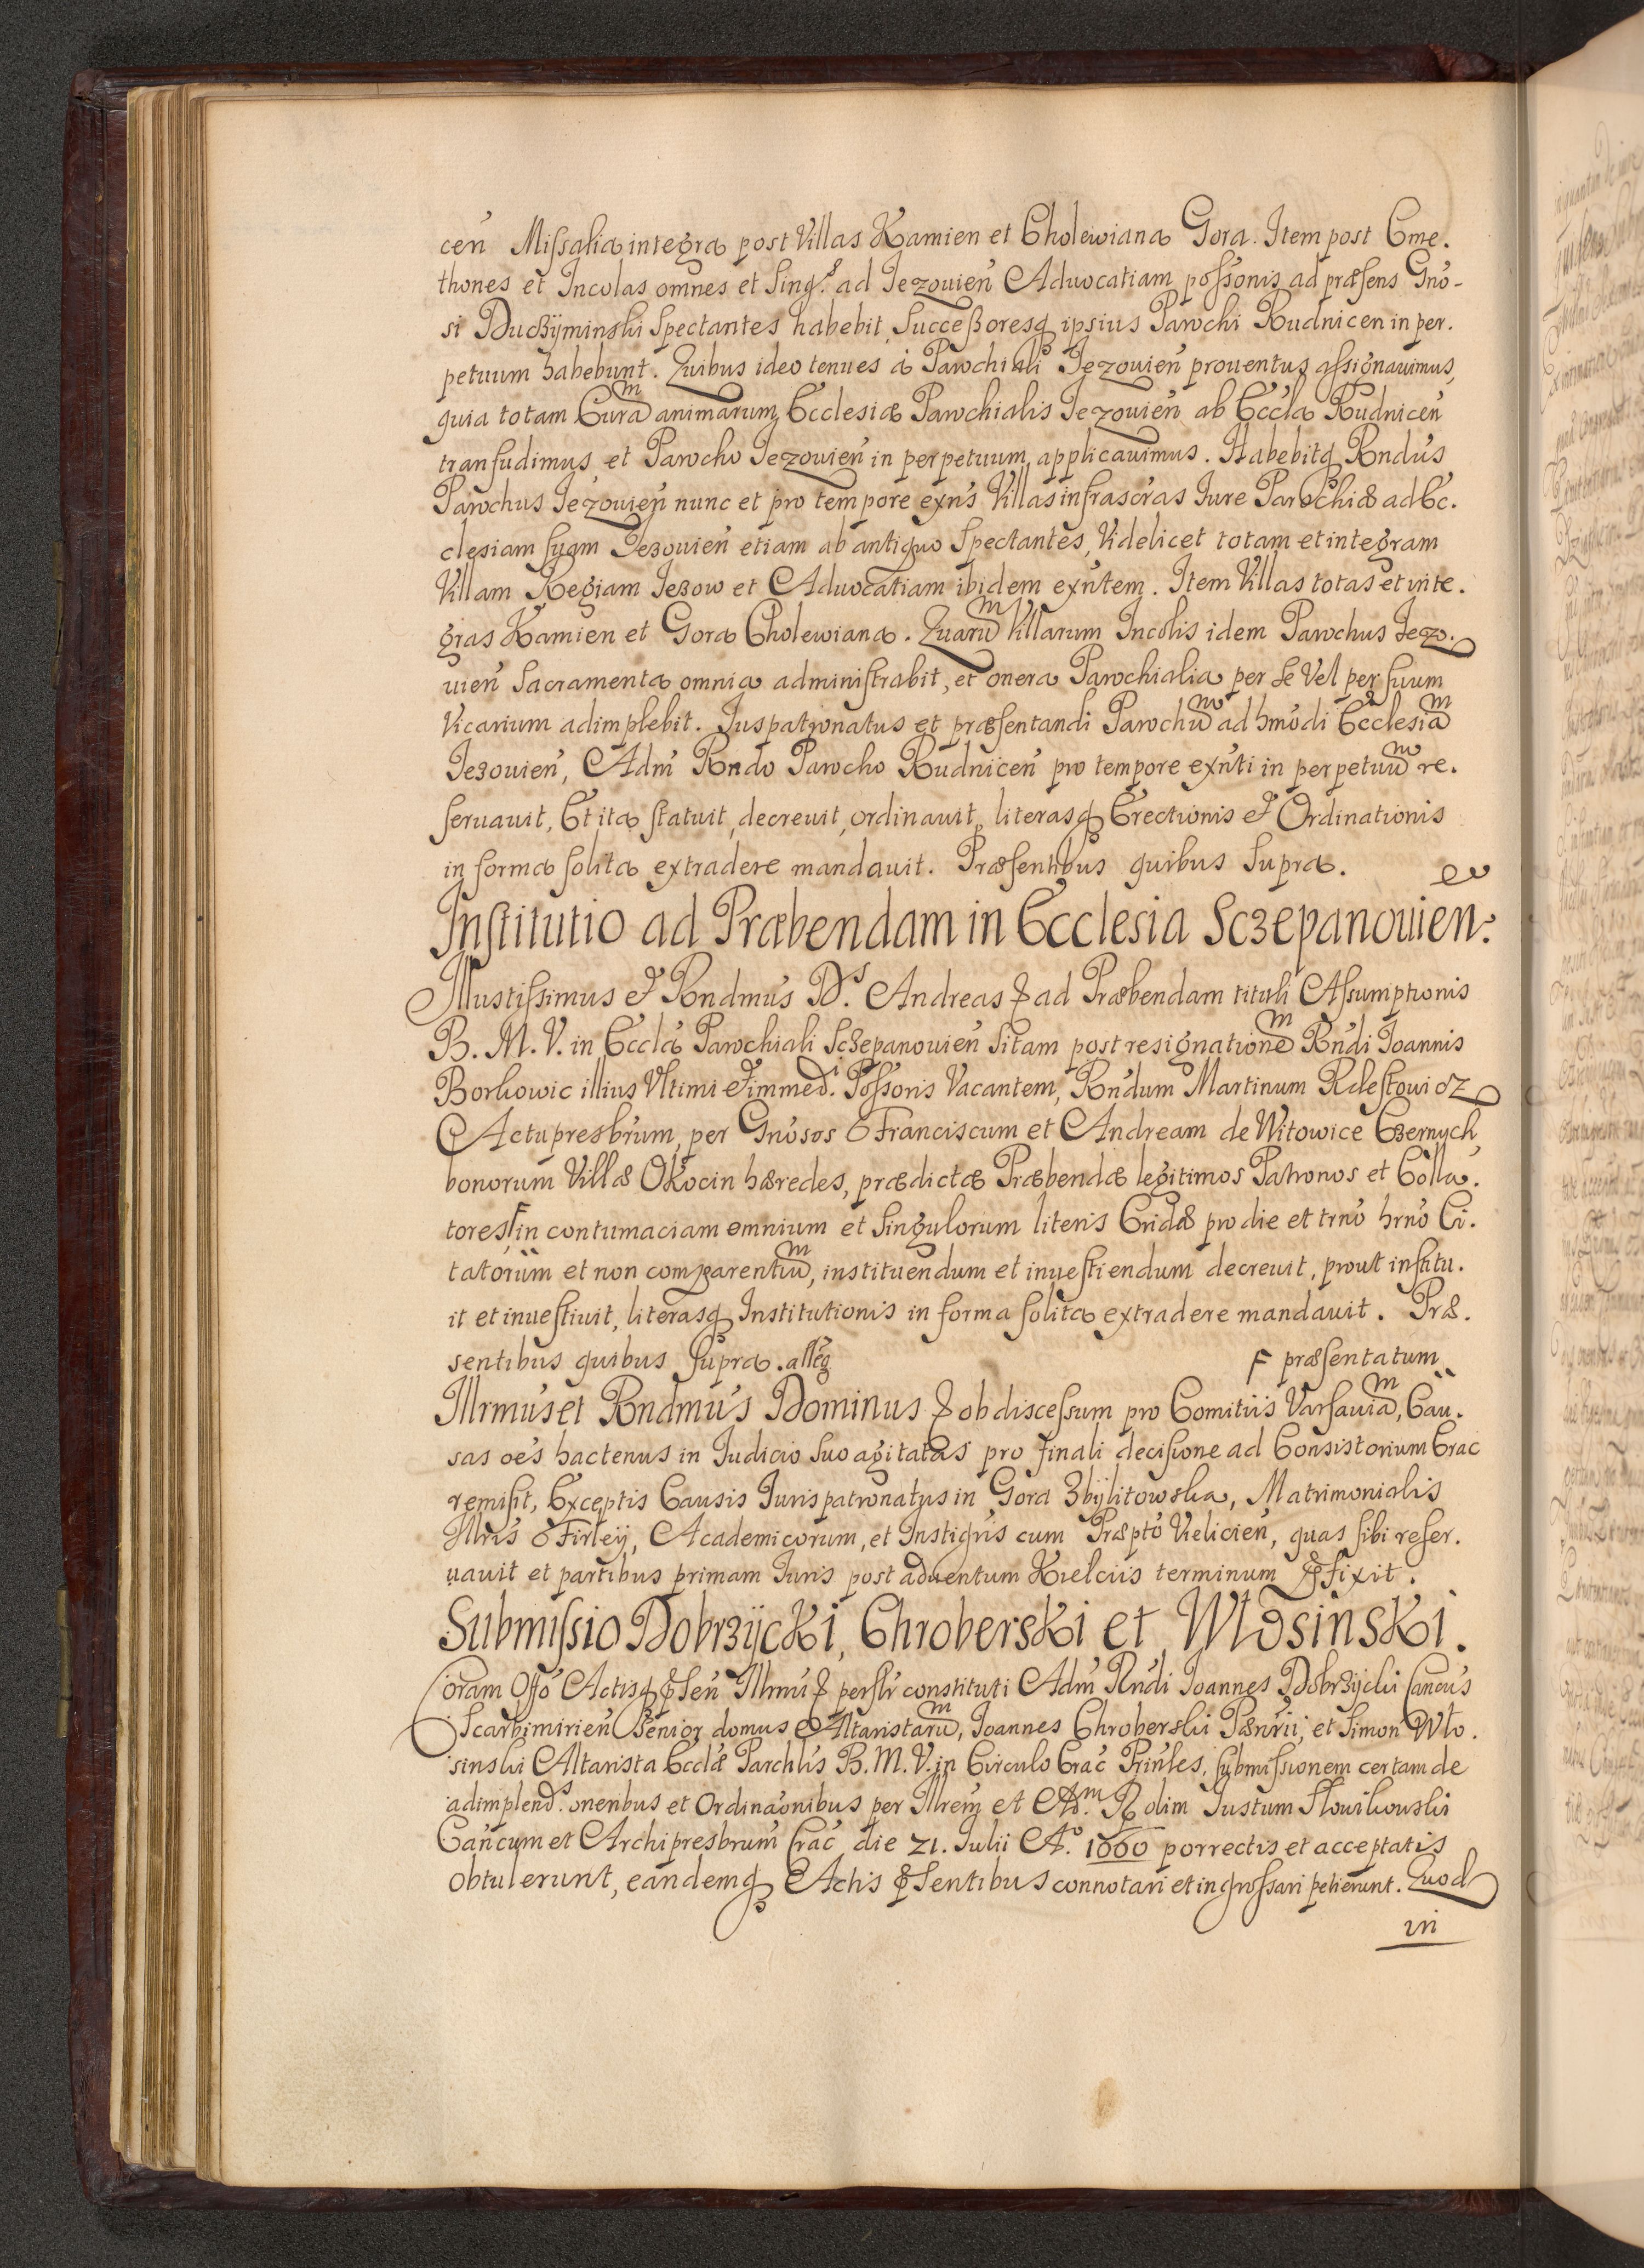 cen̄ Missalia integra post Villas Kamien et Cholewiana Gora. Item post Cme.
thones et Incolas omnes et Sing.s ad Iezouien̄ Advocatiam possonis ad præsens Gno-
si Duczÿminski Spectantes habebit, Successoresq ipsius Parochi Rudnicen in per.
petuum habebunt. Quibus ideo tenues à Parochiali Iezouien̄ prouentus assignauimus,
quia totam Curam animarum Ecclesiæ Parochialis Iezouien̄ ab Eccla Rudnicen̄
transfudimus et Parocho Iezouien̄ in perpetuum applicauimus. Habebitq Rndus
Parochus Iezouien̄ nunc et pro tempore exn̄s Villas infrascras Iure Parochiæ ad Ec.
clesiam suam Iezouien̄ etiam ab antiquo Spectantes, Videlicet totam et integram
Villam Regiam Iezow et Aduocatiam ibidem exn̄tem. Item Villas totas et inte.
gras Kamien et Gora Cholewiana. Quarum Villarum Incolis idem Parochus Iezo.
uien̄ Sacramenta omnia administrabit, et onera Parochialia per se Vel per suum
Vicarium adimplebit. Iuspatronatus et præsentandi Parochum ad hmōdi Ecclesiam
Iezouien̄, Adm̄ Rndo Parocho Rudnicen̄ pro tempore exn̄ti in perpetuum re.
seruauit, Et ita statuit, decreuit, ordinauit, literasq Erectionis et Ordinationis
in forma solita extradere mandauit. Præsentibus quibus Supra.
Institutio ad Præbendam in Ecclesia Sczepanouien:
Illustissimus et Rndmus D.s Andreas & ad Præbendam tituli Assumptionis
B. M. V. in Eccla Parochiali Sczepanouien̄ Sitam post resignationem Rndi Ioannis
Borkowic illius Vltimi et immed.i Possoris Vacantem, Rndum Martinum Relestowicz
Actu presbrum, per Gnosos Franciscum et Andream de Witowice Czernych
bonorum Villæ Okocin hæredes, prædictæ Præbendæ legitimos Patronos et Colla.
tores F in contumaciam omnium et Singulorum literis Cridæ pro die et trno hrno Ci.
tatorūm et non comparentium, instituendum et inuestiendum decreuit, prout institu.
it et inuestiuit, literasq Institutionis in forma solita extradere mandauit. Præ.
sentibus quibus supra. alleg F præsentatum
Illrmus et Rndmus Dominus & ob discessum pro Comitiis Varsauiam, Cau.
sas oēs hactenus in Iudicio Suo agitatas pro finali decisione ad Consistorium Crac
remisit, Exceptis Causis Iurispatronatus in Gora Zbÿlitowska, Matrimonialis
Illris Firleÿ, Academicorum, et Instigris cum Præpto Vielicien̄, quas sibi reser.
uauit et partibus primam Iuris post aduentum Kielciis terminum præfixit.
Submissio Dobrzÿcki, Chroberski et Włosinski.
Coram Offo Actisq præsen̄ Illrmi & perslr constituti Adm̄ Rndi Ioannes Dobrzÿcki Cancus
Scarbimirien̄ Senior domus Altaristarum, Ioannes Chroberski Pænrii, et Simon Wło.
sinski Altarista Ecclæ Parchlis B. M. V. in Circulo Crac Prinles, submissionem certam de
adimplend.s oneribus et Ordinaonibus per Illrem et Ad.m R olim Iustum Słowikowski
Cancum et Archipresbrum Crac die 21. Iulii A.o 1660 porrectis et acceptatis
obtulerunt, eandemq Actis præsentibus connotari et ingrossari petierunt. Quod
in